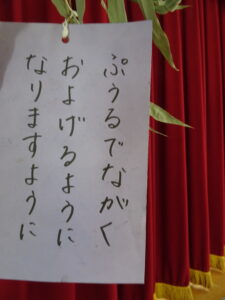 ぷうるでながく
およげるように
なりますように